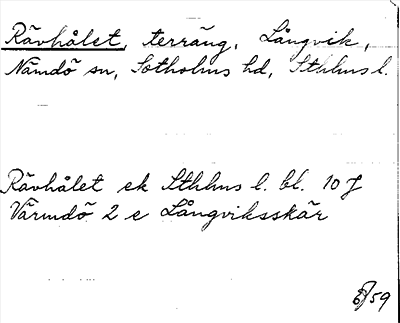 Rävhålet, terräng, Långvik,
Nämdö sn, Sotholms hd, Sthlms l.
Rävhålet ek Sthlms l. bl. 10 J
Värmdö 2 e Långviksskär
/59